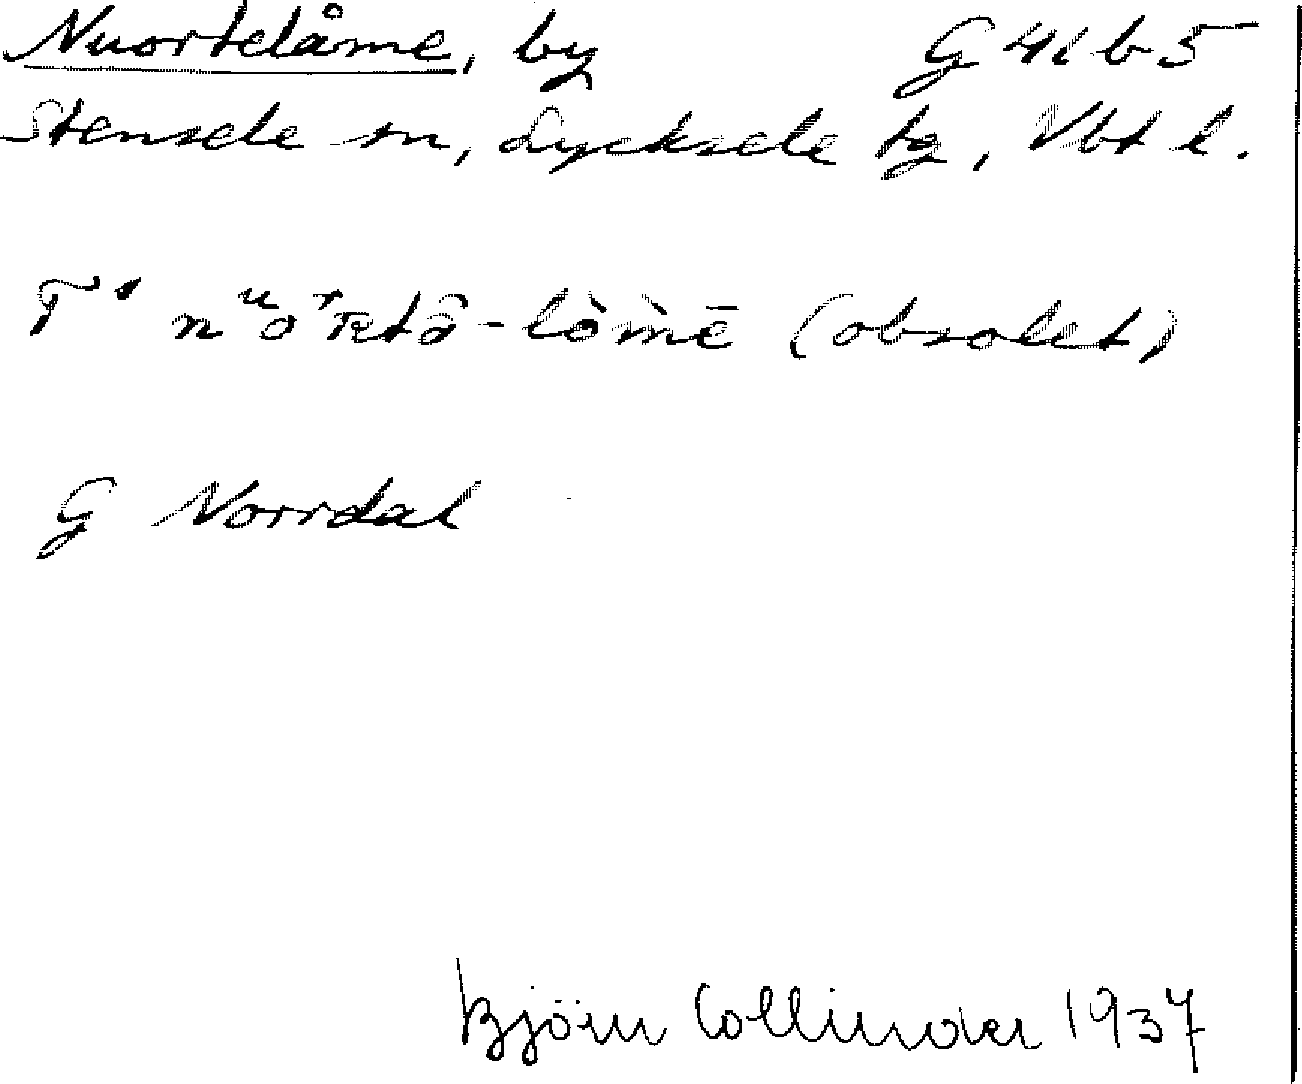 Nuortelåme, by G 41 b 5
Stensele sn, Lycksele tg, Vbt l.
(obsolet)
G Norrdal
Björn Collinder 1937